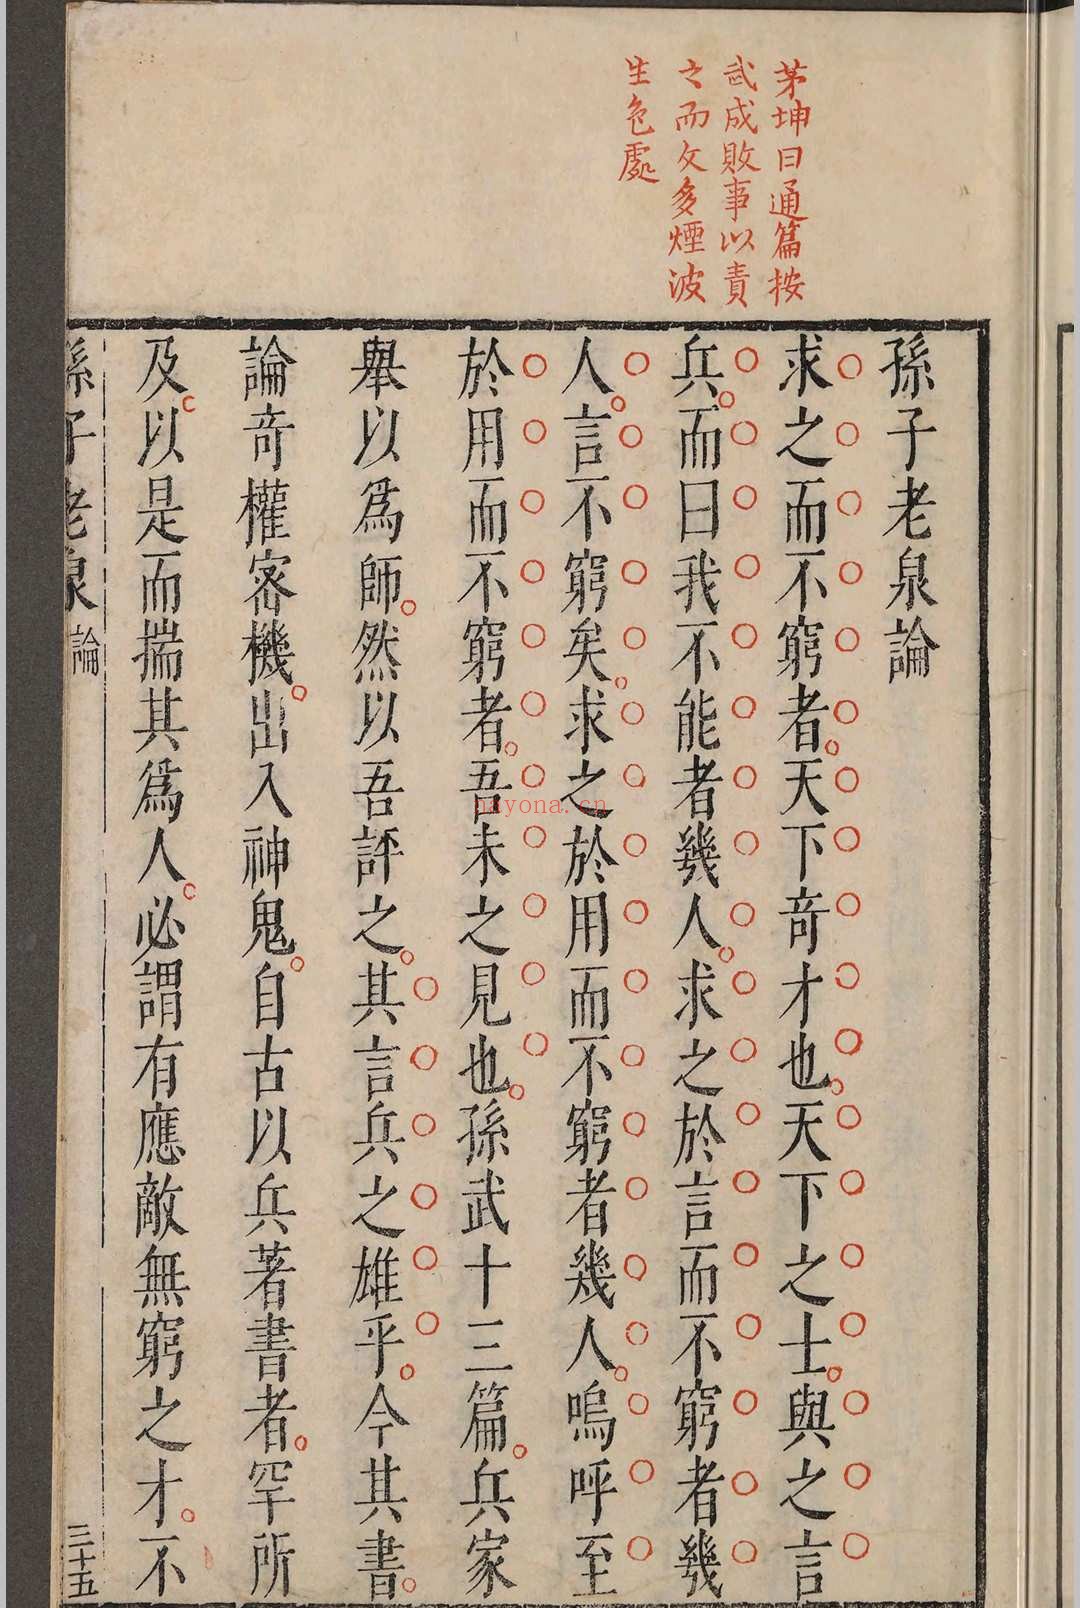 茅坤曰通篇按
武成敗事以責
之而文多煙波
生色處
孫子老泉論
求之而不窮者天下奇才也天下之士與之言
兵而曰我不能者幾人求之於言而不窮者幾
人言不窮矣求之於用而不窮者幾人嗚呼至
於用而不窮者吾未之見也孫武十三篇兵家
舉以爲師然以吾評之其言兵之雄乎今其書
論奇權密機出入神鬼自古以兵著書者罕所
及以是而揣其爲人必謂有應敵無窮之才不
孫子老泉論
三十五
nayona.cn